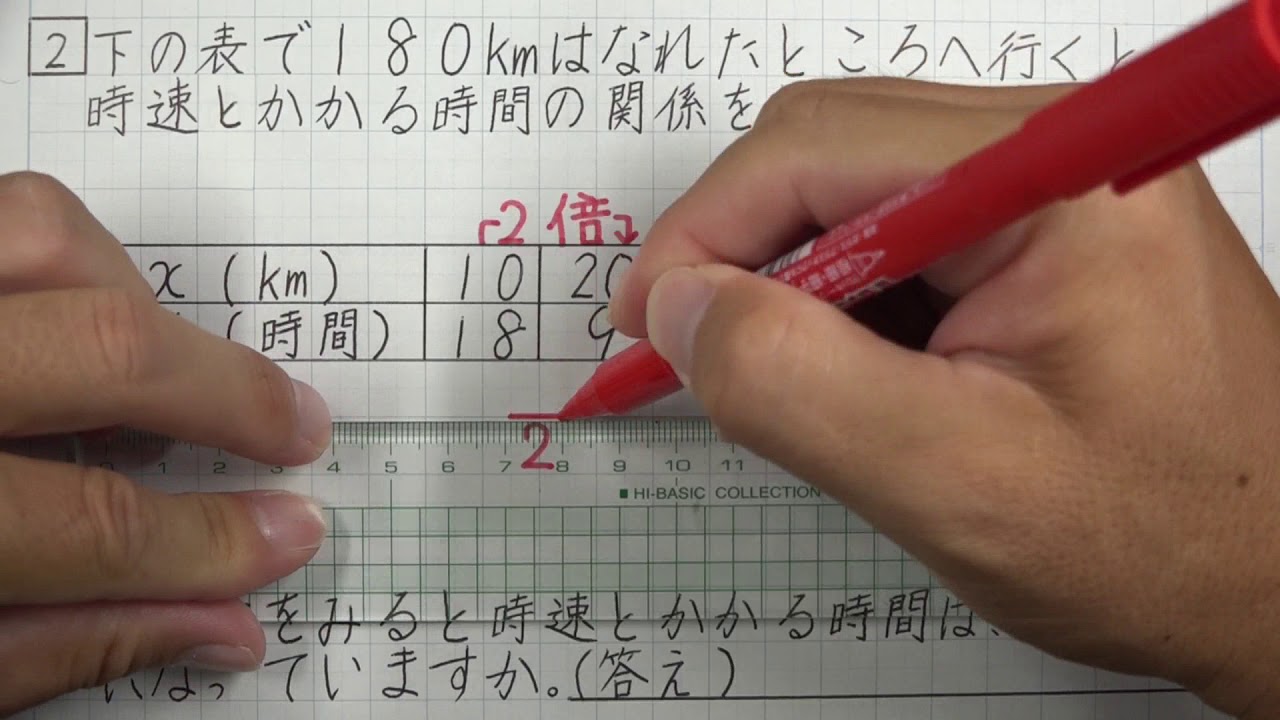 2 下の表で180kmはなれたところへ行くと
時速とかかる時間の関係を
2倍
x (km) 10 20
(時間) 18 9
2
1 2 3 4 5 6 7 8 9 10 11
HI-BASIC COLLECTION
をみると時速とかかる時間は、
になっていますか。(答え)